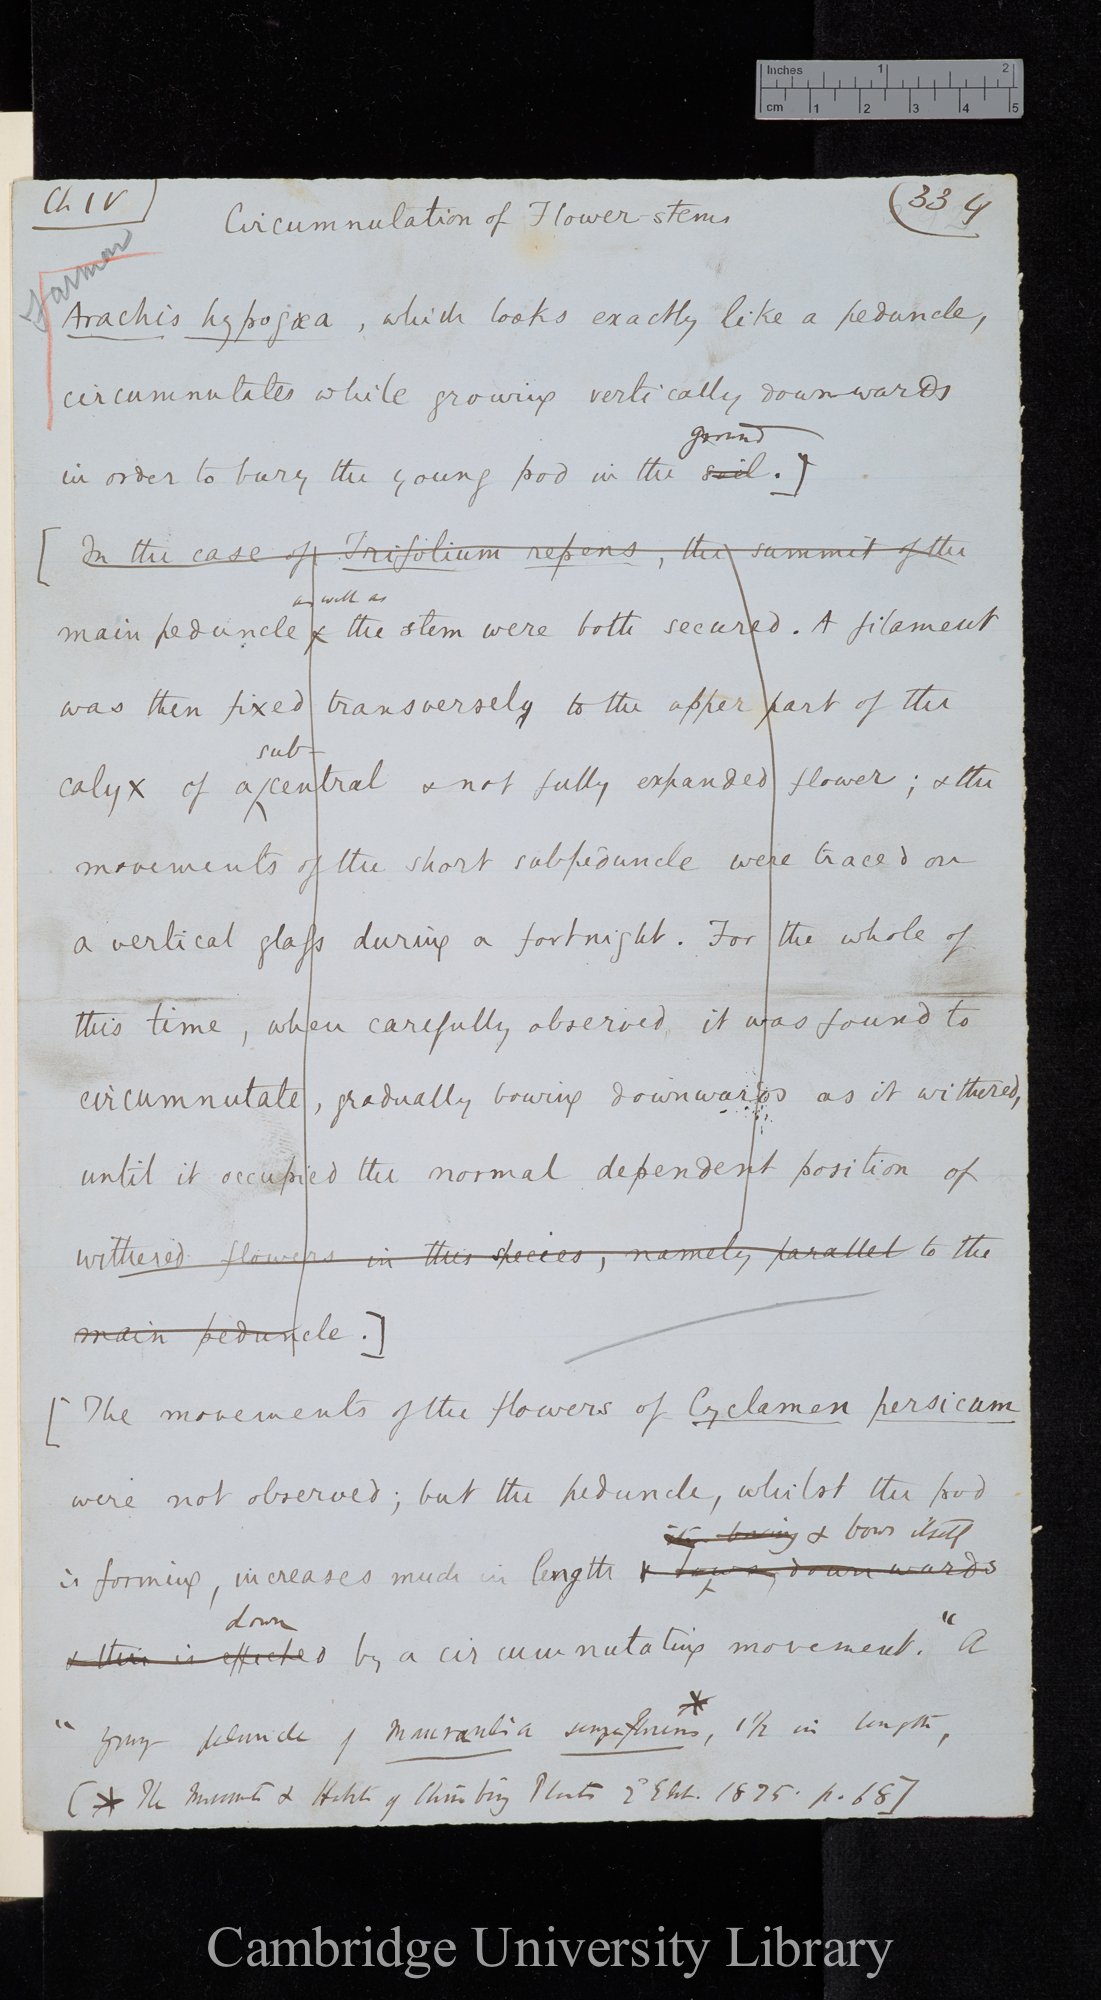 Inches 1 2
cm 1 2 3 4 5
Ch IV
Circumnulation of Flower-stems
(33 4
Farmer
Arachis hypogæa, which looks exactly like a peduncle,
circumnutates while growing vertically downwards
ground
in order to bury the young pod in the soil.]
[In the case of Trifolium repens, the summit of the
as well as
main peduncle & the stem were both secured. A filament
was then fixed transversely to the upper part of the
sub-
calyx of a central & not fully expanded flower; & the
movements of the short subpeduncle were traced on
a vertical glass during a fortnight. For the whole of
this time, when carefully observed it was found to
circumnutate, gradually bowing downwards as it withered,
until it occupied the normal dependent position of
withered flowers in this species, namely parallel to the
main peduncle.]
[The movements of the flowers of Cyclamen persicum
were not observed; but the peduncle, whilst the pod
its bowing & bows itself
is forming, increases much in length & bows downwards
down
& this is effected by a circumnutating movement. "A
"young peduncle of Maurandia semperflorens*, 1½ in length,
[* The Movements & Habits of Climbing Plants 2d Edit. 1875. p. 68]
Cambridge University Library